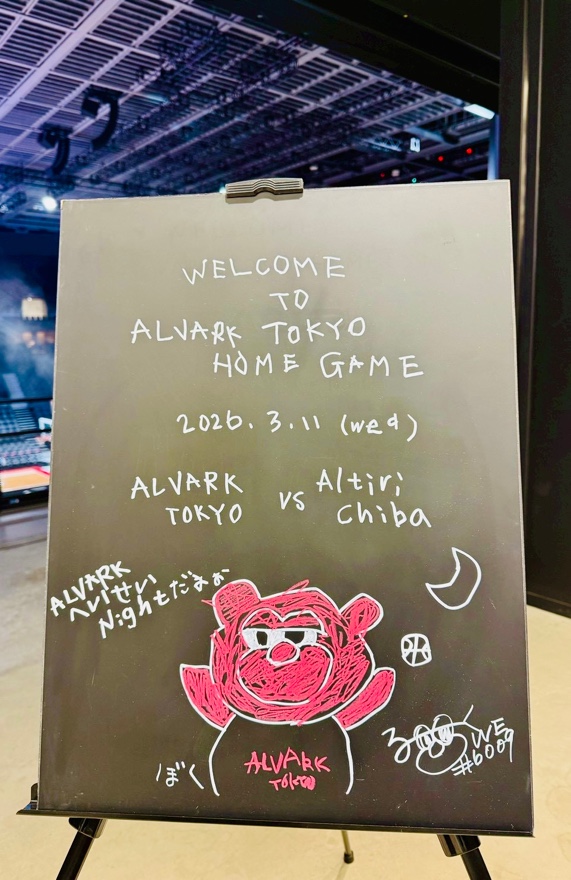 WELCOME
TO
ALVARK TOKYO
HOME GAME
2026.3.11 (wed)
ALVARK
TOKYO
vs
Altiri
Chiba
ALVARK
へいせい
Nightだまぉ
ALVARK
TOKYO
ぼく
WE
#6009